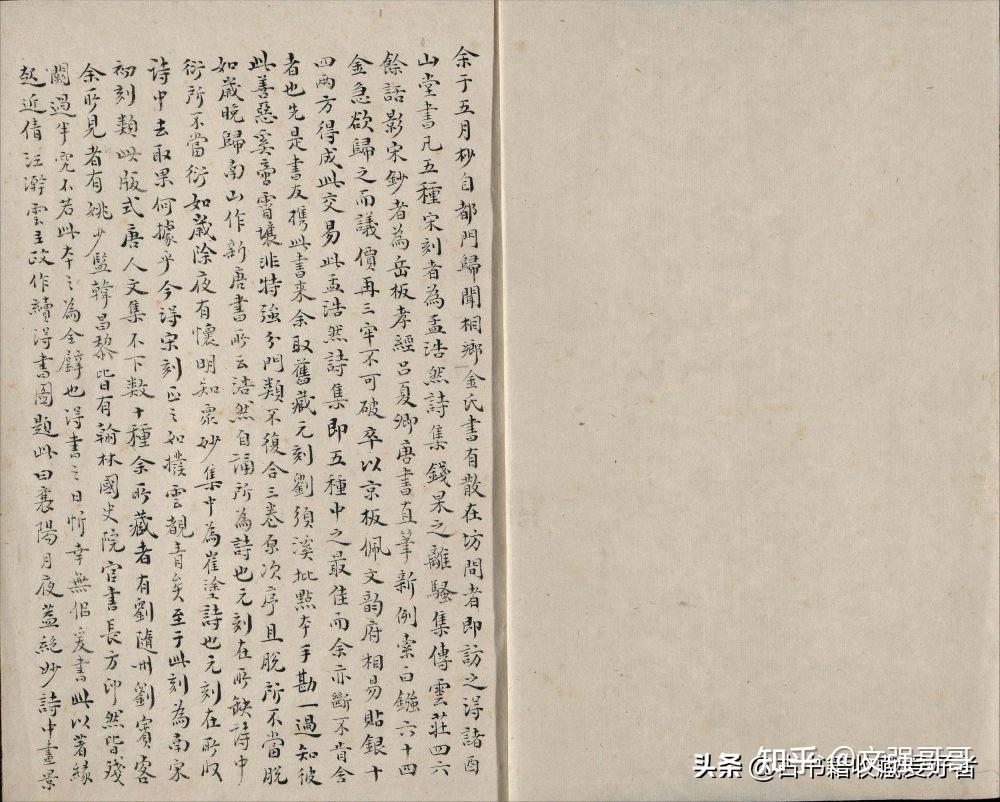 余于五月杪自都門歸聞桐鄉金氏書有散在坊間者即訪之得諸酉
山堂書凡五種宋刻者為孟浩然詩集錢杲之離騷集傳雲莊四六
餘話影宋鈔者為岳板孝經呂夏卿唐書直筆新例索白鏹六十四
金急欲歸之而議價再三牢不可破卒以京板佩文韵府相易貼銀十
四兩方得成此交易此孟浩然詩集即五種中之最佳而余亦斷不肯舍
者也先是書友携此書來余取舊藏元刻劉須溪批點本手勘一過知彼
此善惡奚啻霄壤非特強分門類不復合三卷原次序且脫所不當脫
如歲晚歸南山作新唐書所云浩然自誦所為詩也元刻在所缺詩中
衍所不當衍如歲除夜有懷明知眾妙集中為崔塗詩也元刻在所收
詩中去取果何據乎今得宋刻正之如撥雲覩青矣至于此刻為南宋
初刻類此版式唐人文集不下數十種余所藏者有劉隨州劉賓客
余所見者有姚少監韓昌黎皆有翰林國史院官書長方印然皆殘
闕過半究不若此本之為全璧也得書之日忻幸無侣爰書此以著緣
起近倩汪澣雲主政作續得書圖題此曰襄陽月夜蓋絕妙詩中畫景
头条 @古书籍收藏爱好者
知乎 @文强哥哥